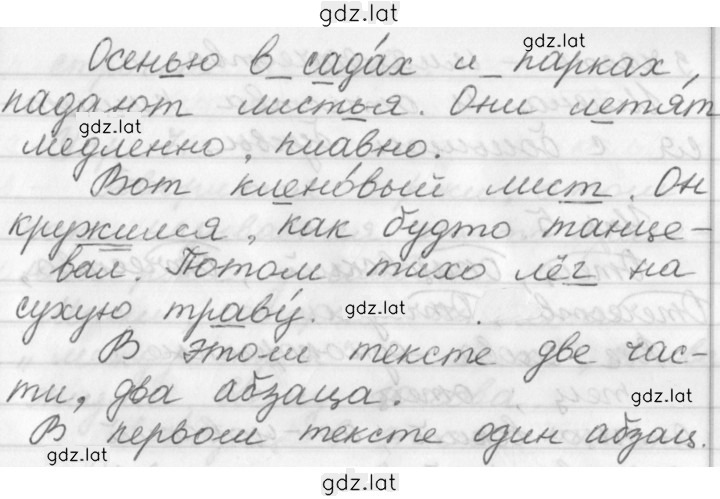 gdz.lat
gdz.lat
Осенью в садáх и парках,
падают листья. Они летя́т
gdz.lat
медленно, плавно.
Вот клено́вый лист. Он
кружился, как будто танце-
вал. Потом тихо лёг на
сухую траву́. gdz.lat
В этом тексте две час-
ти, два абзаца. gdz.lat
В первом тексте один абзац.
gdz.lat
gdz.lat